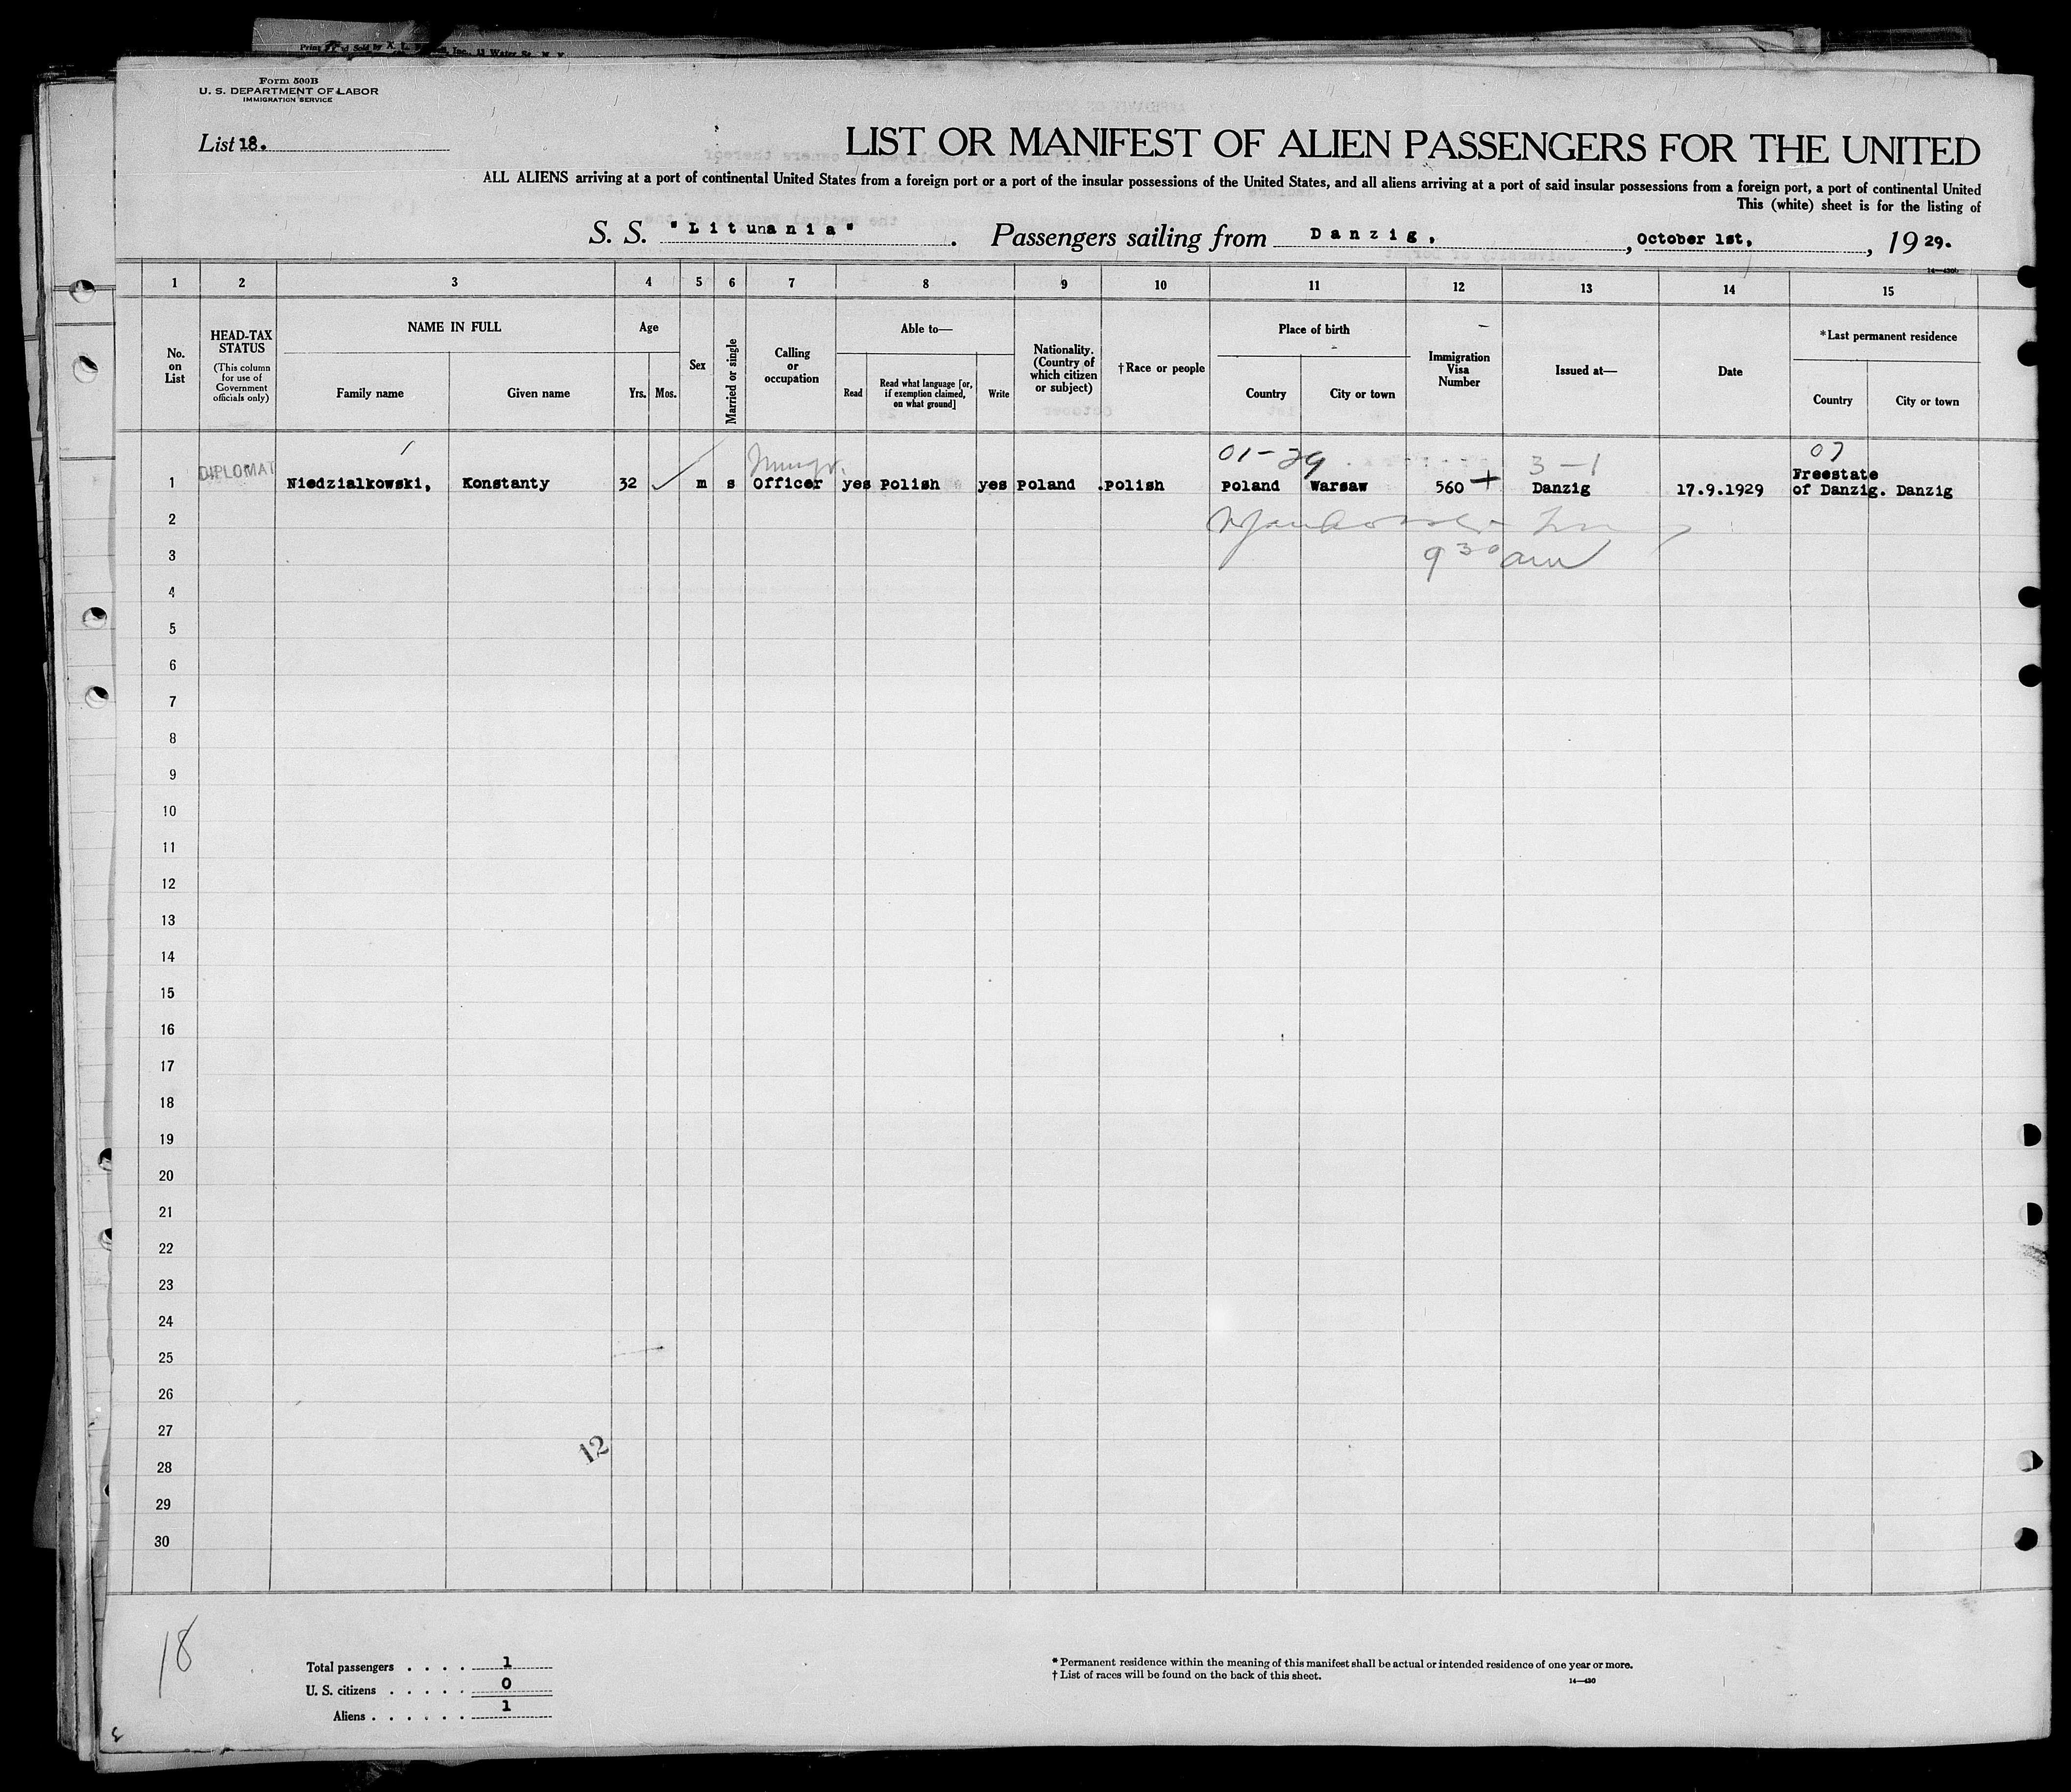 Form 500B
U. S. DEPARTMENT OF LABOR
IMMIGRATION SERVICE
List 18.
LIST OR MANIFEST OF ALIEN PASSENGERS FOR THE UNITED
ALL ALIENS arriving at a port of continental United States from a foreign port or a port of the insular possessions of the United States, and all aliens arriving at a port of said insular possessions from a foreign port, a port of continental United
This (white) sheet is for the listing of
S. S. "Lituania". Passengers sailing from Danzig, , October 1st, , 1929.
1 2 3 4 5 6 7 8 9 10 11 12 13 14 15
No. on List
HEAD-TAX STATUS
(This column for use of Government officials only)
NAME IN FULL
Family name Given name
Age
Yrs. Mos.
Sex
Married or single
Calling or occupation
Able to—
Read Read what language [or, if exemption claimed, on what ground] Write
Nationality. (Country of which citizen or subject)
†Race or people
Place of birth
Country City or town
Immigration Visa Number
Issued at—
Date
*Last permanent residence
Country City or town
01-29 3-1 07
1 DIPLOMAT Niedzialkowski, Konstanty 32 m s Officer yes Polish yes Poland .Polish Poland Warsaw 560 + Danzig 17.9.1929 Freestate of Danzig. Danzig
2
3 9 30 am
4
5
6
7
8
9
10
11
12
13
14
15
16
17
18
19
20
21
22
23
24
25
26
27
12
28
29
30
18
Total passengers . . . . 1
U. S. citizens . . . . . 0
Aliens . . . . . . 1
* Permanent residence within the meaning of this manifest shall be actual or intended residence of one year or more.
† List of races will be found on the back of this sheet.
14—430